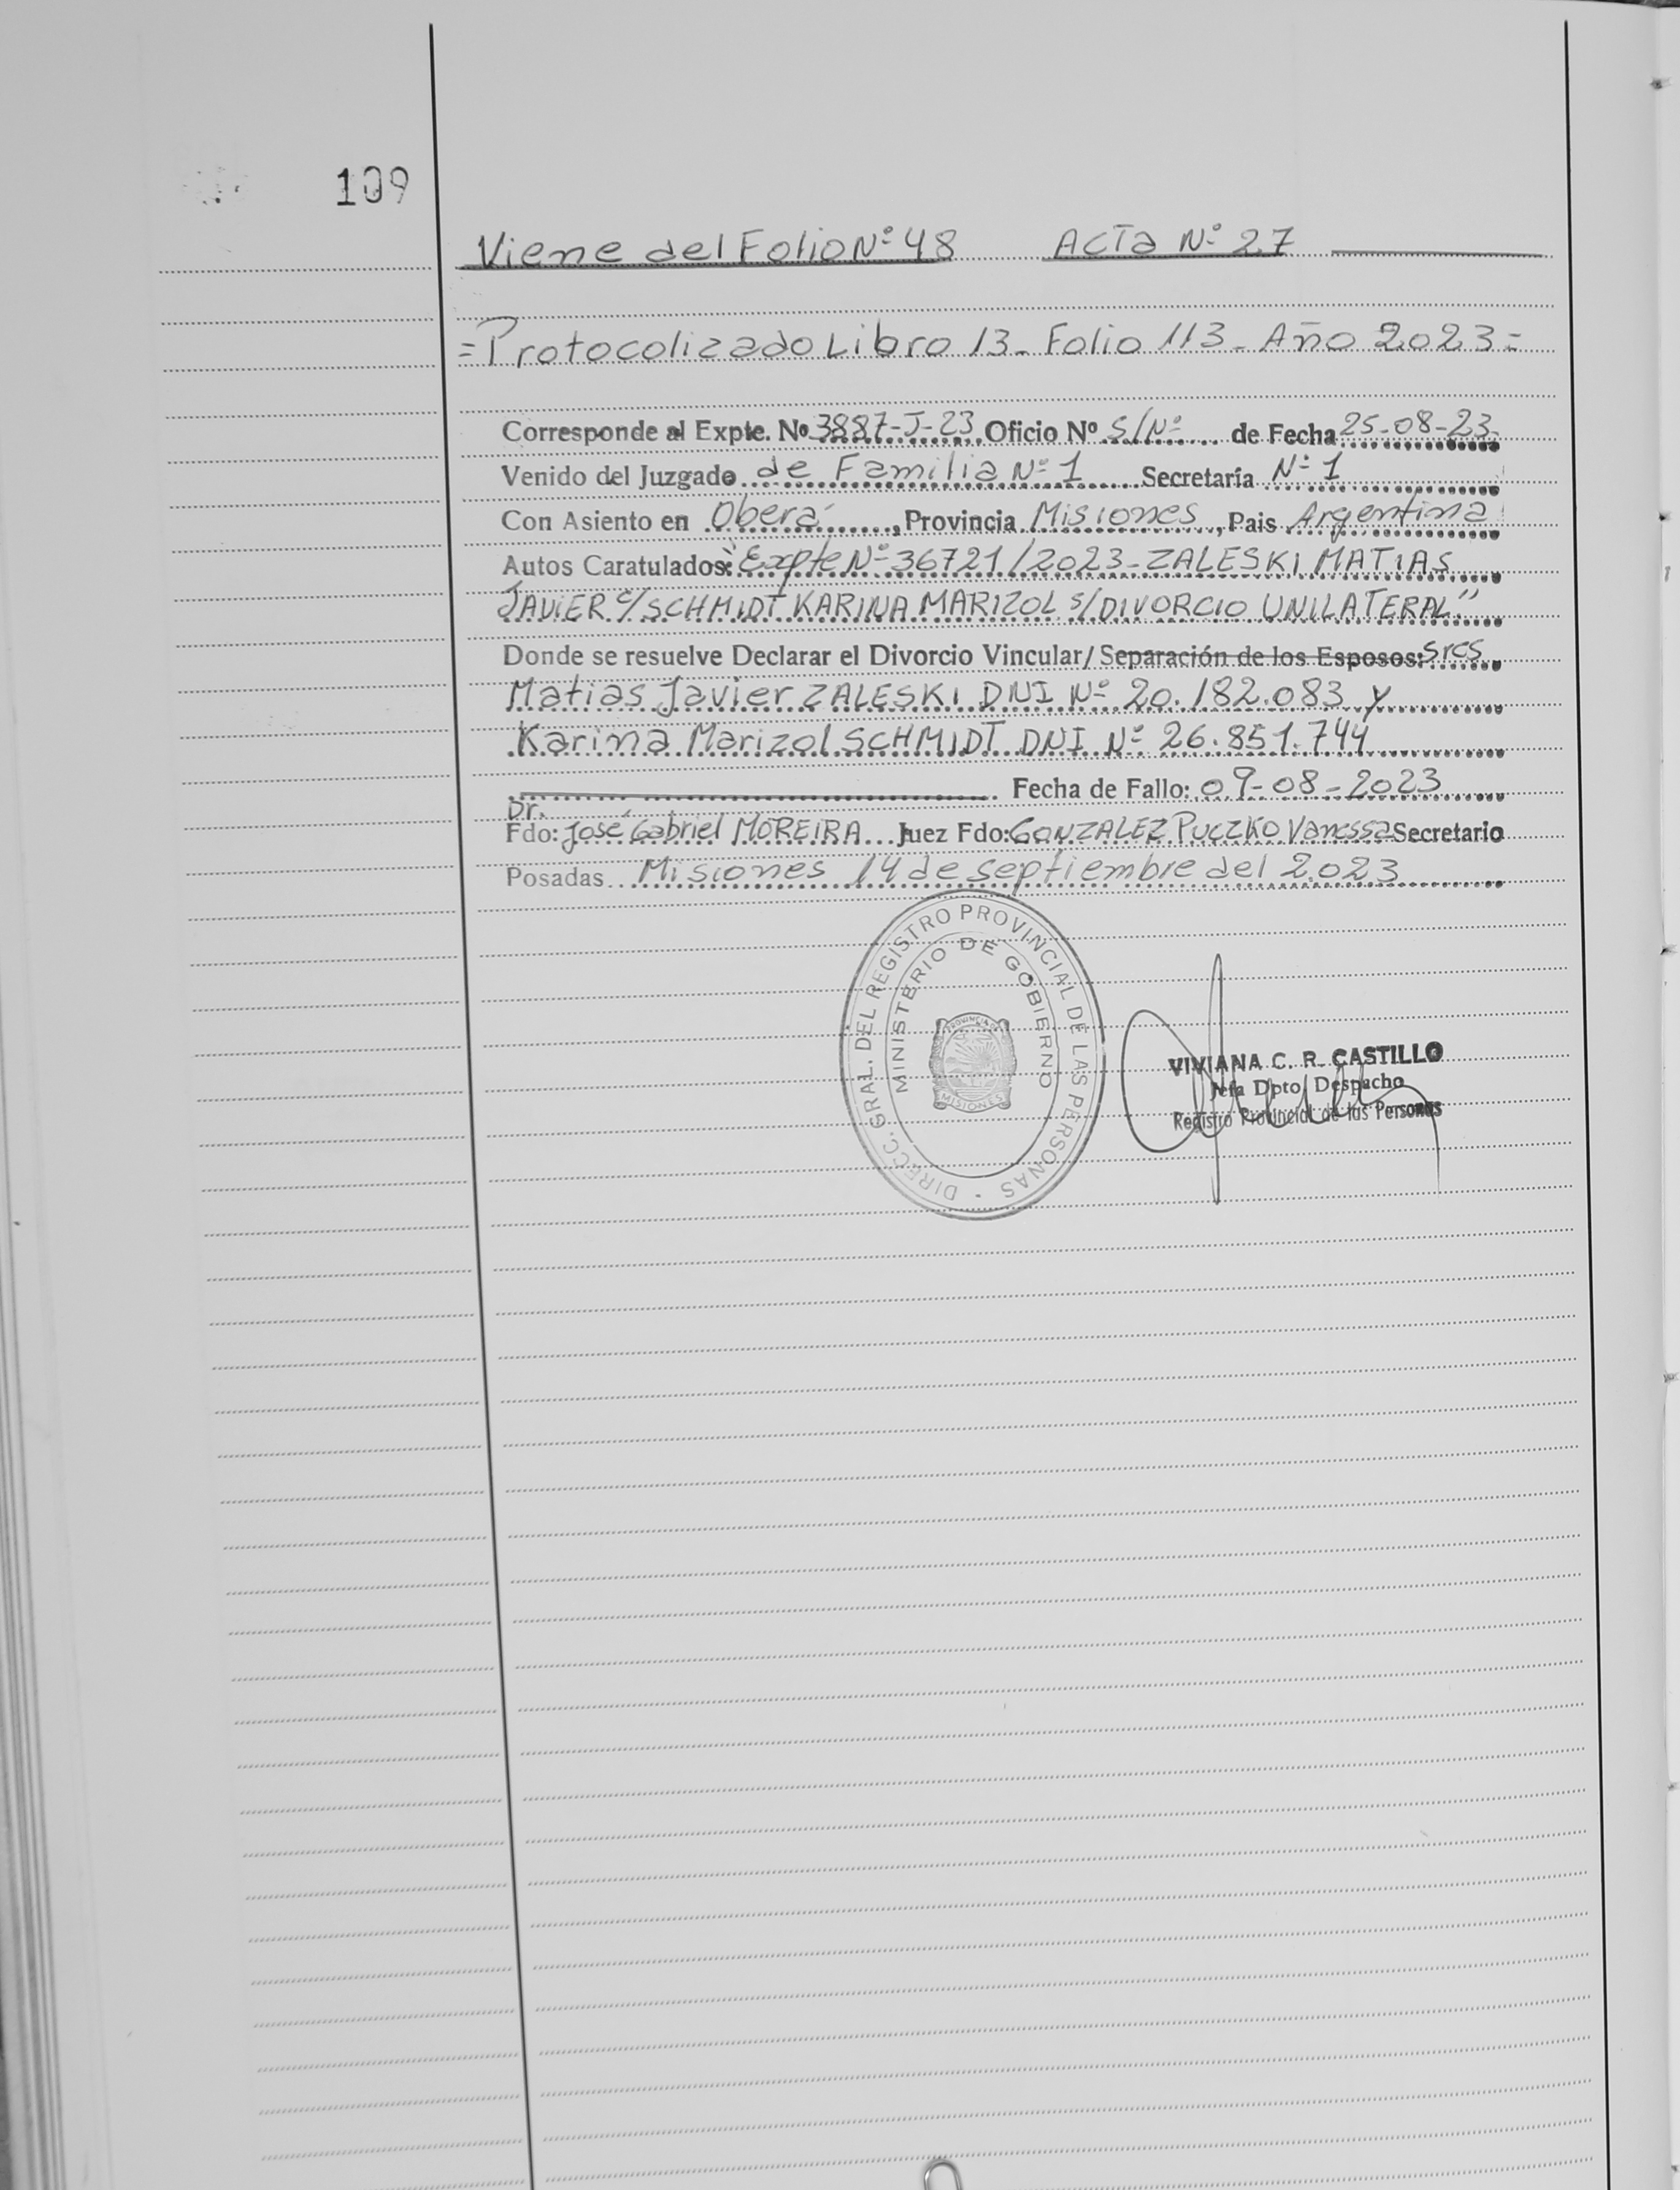 109
Viene del Folio Nº 48 Acta Nº 27
=Protocolizado Libro 13- Folio 113- Año 2023=
Corresponde al Expte. Nº 3887-J-23 Oficio Nº S/Nº de Fecha 25-08-23-
Venido del Juzgado de Familia Nº 1 Secretaría Nº 1
Con Asiento en Oberá, Provincia Misiones, Pais Argentina
Autos Caratulados: "Expte Nº 36721/2023-ZALESKI MATIAS
JAVIER c/SCHMIDT KARINA MARIZOL s/DIVORCIO UNILATERAL"
Donde se resuelve Declarar el Divorcio Vincular/ Separación de los Esposos: sres
Matias Javier ZALESKI DNI Nº 20.182.083 y
Karina Marizol SCHMIDT DNI Nº 26.851.744
Fecha de Fallo: 09-08-2023
Dr.
Fdo: José Gabriel MOREIRA Juez Fdo: GONZALEZ PUCZKO Vanessa Secretario
Posadas Misiones 14 de septiembre del 2023
DIRECC. GRAL. DEL REGISTRO PROVINCIAL DE LAS PERSONAS
MINISTERIO DE GOBIERNO
PROVINCIA DE
MISIONES
VIVIANA C. R. CASTILLO
Jefa Dpto. Despacho
Registro Provincial de las Personas